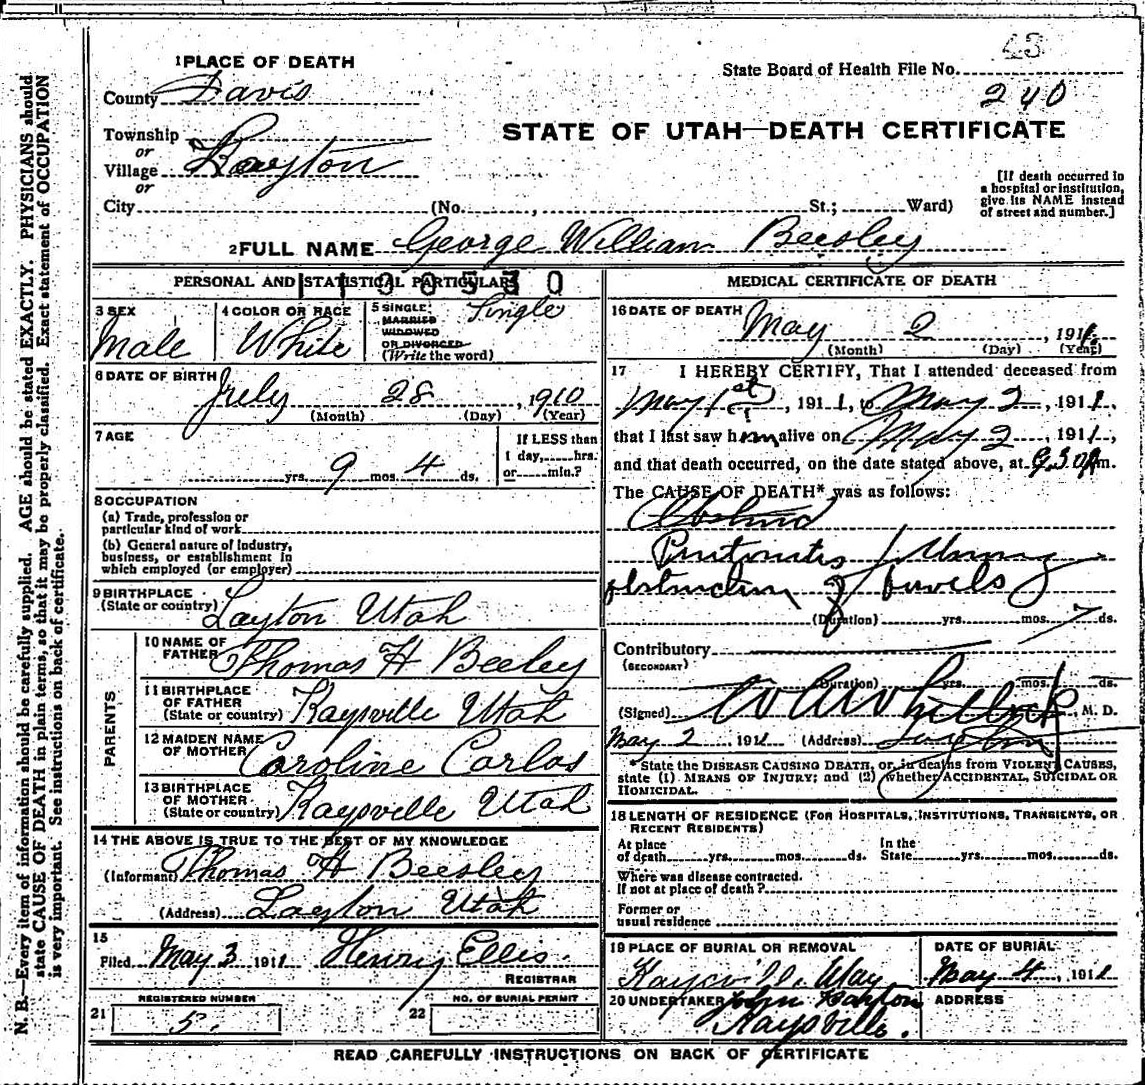 23
1 PLACE OF DEATH
State Board of Health File No.
County Davis
240
STATE OF UTAH—DEATH CERTIFICATE
Township
or
Village Layton
or
City (No. , St.; Ward)
[If death occurred in
a hospital or institution,
give its NAME instead
of street and number.]
2 FULL NAME George William Beesley
PERSONAL AND STATISTICAL PARTICULARS
3 SEX Male
4 COLOR OR RACE White
5 SINGLE, Single
MARRIED
WIDOWED
OR DIVORCED
(Write the word)
6 DATE OF BIRTH July 28, 1910
(Month) (Day) (Year)
7 AGE
yrs. 9 mos. 4 ds.
If LESS than
1 day, hrs.
or min.?
8 OCCUPATION
(a) Trade, profession or
particular kind of work
(b) General nature of industry,
business, or establishment in
which employed (or employer)
9 BIRTHPLACE
(State or country) Layton Utah
PARENTS
10 NAME OF
FATHER Thomas H Beesley
11 BIRTHPLACE
OF FATHER
(State or country) Kaysville Utah
12 MAIDEN NAME
OF MOTHER Caroline Carlos
13 BIRTHPLACE
OF MOTHER
(State or country) Kaysville Utah
14 THE ABOVE IS TRUE TO THE BEST OF MY KNOWLEDGE
(Informant) Thomas H Beesley
(Address) Layton Utah
15
Filed May 3 1911 Henry Ellis.
REGISTRAR
REGISTERED NUMBER
21 5.
NO. OF BURIAL PERMIT
22
MEDICAL CERTIFICATE OF DEATH
16 DATE OF DEATH
May 2, 1911.
(Month) (Day) (Year)
17 I HEREBY CERTIFY, That I attended deceased from
May 1st, 1911, to May 2, 1911,
that I last saw him alive on May 2, 1911,
and that death occurred, on the date stated above, at 9.30 Pm.
The CAUSE OF DEATH* was as follows:
obstruction of bowels
(Duration) yrs. mos. 7 ds.
Contributory
(SECONDARY)
(Duration) yrs. mos. ds.
(Signed) M. D.
May 2 1911 (Address) Layton
State the DISEASE CAUSING DEATH, or, in deaths from VIOLENT CAUSES,
state (1) MEANS OF INJURY; and (2) whether ACCIDENTAL, SUICIDAL OR
HOMICIDAL.
18 LENGTH OF RESIDENCE (FOR HOSPITALS, INSTITUTIONS, TRANSIENTS, OR
RECENT RESIDENTS)
At place
of death yrs. mos. ds.
In the
State yrs. mos. ds.
Where was disease contracted.
If not at place of death?
Former or
usual residence
19 PLACE OF BURIAL OR REMOVAL
Kaysville
DATE OF BURIAL
May 4, 1911
20 UNDERTAKER
Kaysville.
ADDRESS
READ CAREFULLY INSTRUCTIONS ON BACK OF CERTIFICATE
N. B.—Every item of information should be carefully supplied. AGE should be stated EXACTLY. PHYSICIANS should
state CAUSE OF DEATH in plain terms, so that it may be properly classified. Exact statement of OCCUPATION
is very important. See instructions on back of certificate.